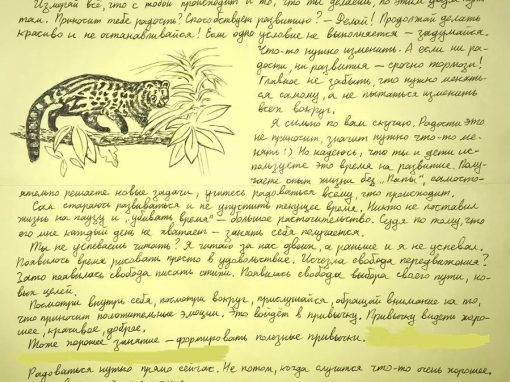 Измеряй всё, что с тобой происходит и то, что ты делаешь, по этим двум пунк-
там. Приносит тебе радость? Способствует развитию? – Делай! Продолжай делать
красиво и не останавливайся! Если одно условие не выполняется – задумайся.
Что-то нужно изменить. А если ни ра-
дости, ни развития – срочно тормози!
Главное не забыть, что нужно менять-
ся самому, а не пытаться изменить
всех вокруг.
Я сильно по вам скучаю. Радости это
не приносит, значит нужно что-то ме-
нять :) Но надеюсь, что ты и дети ис-
пользуете это время на развитие. Полу-
чаете опыт жизни без „папы“, самостоя-
тельно решаете новые задачи, учитесь радоваться всему, что происходит.
Сам стараюсь развиваться и не упустить текущее время. Никто не поставил
жизнь на паузу и „убивать время“ – большое расточительство. Судя по тому, что
его мне каждый день не хватает – занять себя получается.
Ты не успеваешь читать? Я читаю за нас двоих, а раньше и я не успевал.
Появилось время рисовать просто в удовольствие. Исчезла свобода передвижения?
Зато появилась свобода писать стихи. Появилась свобода выбора своего пути, но-
вых целей.
Посмотри внутрь себя, посмотри вокруг, прислушайся, обращай внимание на то,
что приносит положительные эмоции. Это войдёт в привычку. Привычку видеть хоро-
шее, красивое, доброе.
Тоже хорошее занятие – формировать полезные привычки.
Радоваться нужно прямо сейчас. Не потом, когда случится что-то очень хорошее.